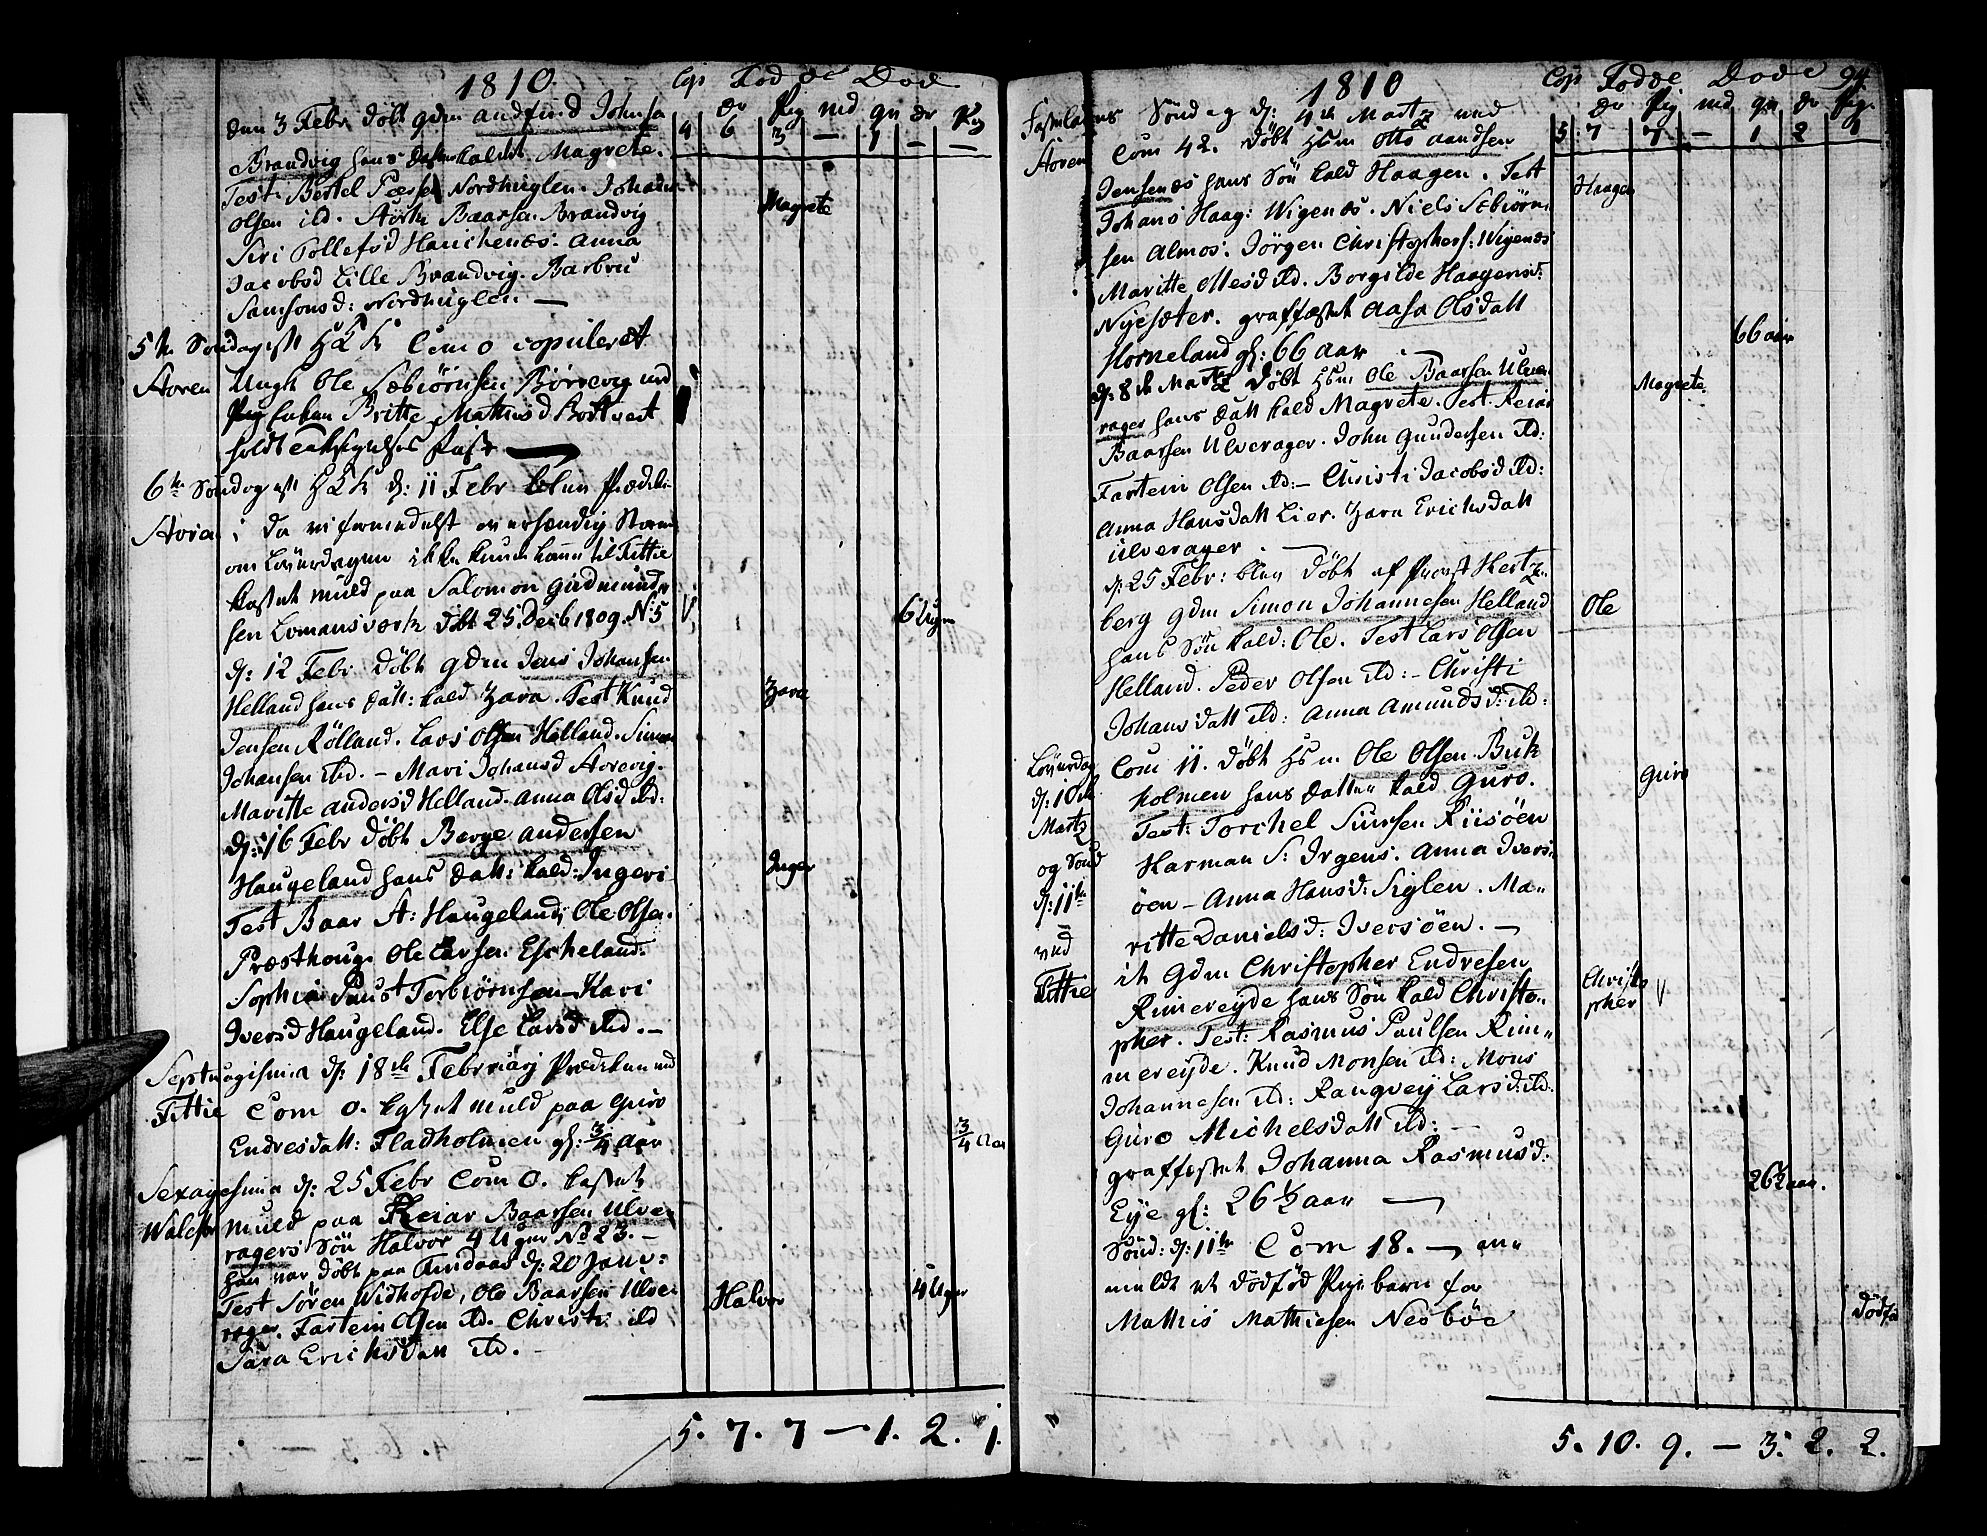 1810.
Cop Fødde Døde
dr Pig md qn dr Pig
4 6 3 — 1 — —
den 3 Febr døbt gdm Andfind Johnsen
Brandvig hans datter kaldet Magrete.
Test. Bertel Nordhuglen. Johan
Olsen ibd. Baarsen Brandvig
Siri Tollefsd Anna
Jacobsd Lille Brandvig. Barbru
Samsonsd: Nordhuglen —
Magrete
5te Søndag Com 0 copuleret
Støren Ungk Ole Sæbiørnsen Børrevig med
Pig Britte Mathiisd
holdt
6te Søndag d: 11 Febr blev Prædike
da vi formedelst
om Løverdagen ikke kunde komme til Fittie
kastet muld paa Salomon Gudmund
sen Lomansværk døbt 25 Decb 1809. No 5
6 Uger
d: 12 Febr døbt gdm Jens Johansen
Helland hans datt: kald Zara. Test Knud
Zara
Jensen Rølland. Lars Olsen Helland. Simon
Johansen ibd. — Mari Johansd Storevig.
Maritte Andersd Helland. Anna Olsd ibd.
d: 16 Febr døbt Børge Andersen
Haugeland hans datt: kald: Ingeri
Inger
Test Baar A: Haugeland, Ole Olsen
Præsthoug. Ole Larsen Escheland.
Sophia Torbiørnsen Kari
Iversd Haugeland. Else Larsd ibd. —
Septuagisima d: 18de Februarj Prædiken ved
Fittie Com 0. kastet muld paa Guro
Endresdatt: Fladholmen gl: 3/4 aar
3/4 Aar
Sexagesima d: 25 Febr Com 0. kastet
muld paa Reiar Baarsen Ulve
ragers Søn Halvor 4 Uger No 23. —
han var døbt paa d: 20 Janv:
Test Søren Widhofde, Ole Baarsen Ulve
rager. Fartem Olsen ibd. Christi ibd
Sara Erichsdatt ibd. —
Halvor
4 Uger
5. 7. 7 — 1. 2. 1.
1810
94.
Cop Fødde Døde
dr Pig md qn dr Pig
5 7 7 — 1 2 1
Fastelauns Søndag d: 4de Martz ved
Støren Com 42. døbt Hsm Otto Aandsen
Jensenæs hans Søn kald Haagen. Test
Haagen
Johans Haag: Wigenæs. Niels Sæbiørn
sen Almos. Jørgen Christophers: Wigenæs
Maritte Ottesd ibd. Borgilde Haagensd:
Nyesæter. graffæstet Aasa Olsdatt
Horneland gl: 66 Aar
66 aar
d: 8de Martz døbt Hsm Ole Baarsen Ulve
rager hans datt kald Magrete. Test. Reiar
Magrete
Baarsen Ulverager. John Gundersen ibd:
Fartem Olsen ibd: — Christi Jacobsd ibd:
Anna Hansdatt Lier. Zara Erichsdatt
Ulverager. —
d: 25 Febr: blev døbt af Provst Hertz
berg gdm Simon Johannesen Helland
Ole
hans Søn kald: Ole. Test Lars Olsen
Helland. Peder Olsen ibd: — Christi
Johansdatt ibd: Anna Amundsd: ibd:
Løverdag
d: 10de
Martz
og Sønd
d: 11te
ved
Fittie
Com 11. døbt Hsm Ole Olsen Buk
holmen hans datter kald Guro.
Guro
Test: Torchel Siursen Riisøen
Harman S: Irgens. Anna Ivers
øen — Anna Hansd: Siglen. Ma
ritte Danielsd: Iversøen. —
it Gdm Christopher Endresen
Rimereyde hans Søn kald Christo
Christo
pher
pher. Test: Rasmus Paulsen Rim
mereyde. Knud Monsen ibd: Mons
Johannesen ibd: Rangvey Larsd: ibd.
Guro Michelsdatt ibd:
graffæstet Johanna Rasmusd:
Eye gl: 26 1/2 aar —
26 1/2 aar.
Sønd: d: 11te Com 18. —
muldt et dødfød Pigebarn for
Mathis Mathiesen Nesbøe
dødfø
5. 10. 9. — 3. 2. 2.